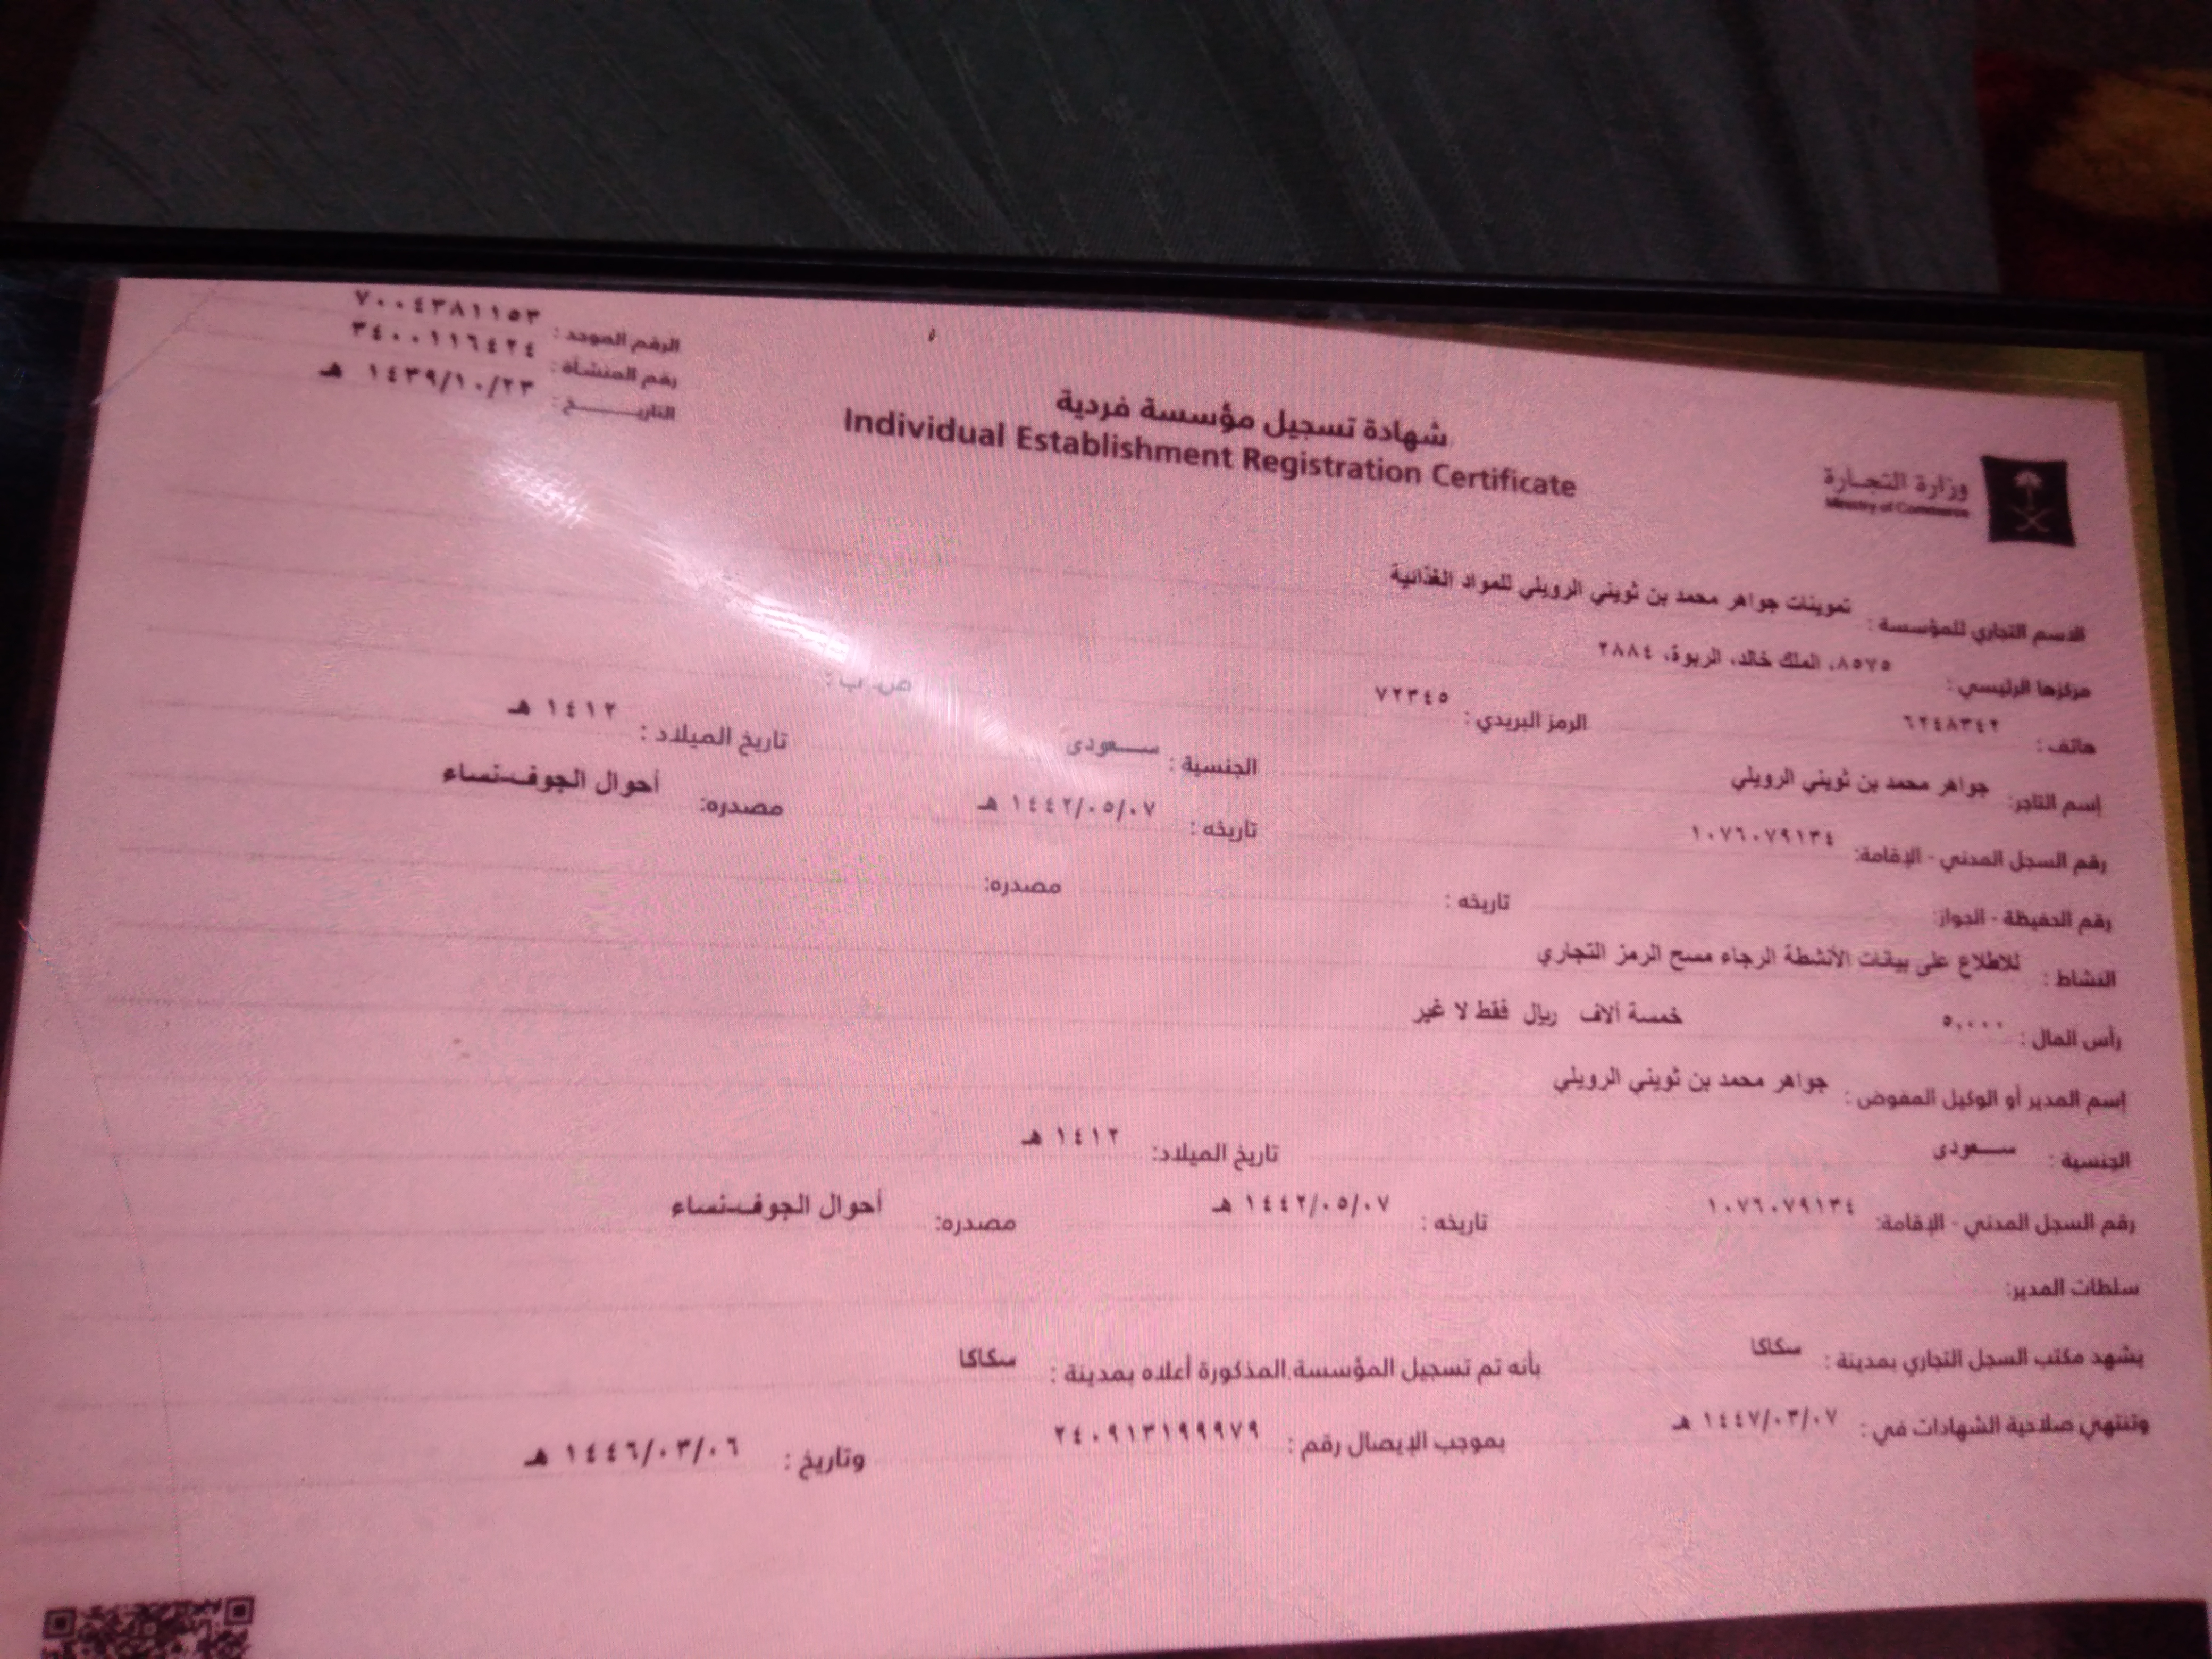 الرقم الموحد : ٧٠٠٤٣٨١١٥٣
رقم المنشأة : ٣٤٠٠١١٦٤٢٤
التاريـــــخ : ١٤٣٩/١٠/٢٣ هـ
شهادة تسجيل مؤسسة فردية
Individual Establishment Registration Certificate
وزارة التجـارة
Ministry of Commerce
الاسم التجاري للمؤسسة : تموينات جواهر محمد بن ثويني الرويلي للمواد الغذائية
مركزها الرئيسي : ٨٥٧٥، الملك خالد، الربوة، ٢٨٨٤
هاتف : ٦٢٤٨٣٤٢ الرمز البريدي : ٧٢٣٤٥ ص. ب :
إسم التاجر: جواهر محمد بن ثويني الرويلي الجنسية : سـعودى تاريخ الميلاد : ١٤١٢ هـ
رقم السجل المدني - الإقامة: ١٠٧٦٠٧٩١٣٤ تاريخه : ١٤٤٢/٠٥/٠٧ هـ مصدره: أحوال الجوف-نساء
رقم الحفيظة - الجواز: تاريخه : مصدره:
النشاط : للاطلاع على بيانات الأنشطة الرجاء مسح الرمز التجاري
رأس المال : ٥,٠٠٠ خمسة آلاف ريال فقط لا غير
إسم المدير أو الوكيل المفوض : جواهر محمد بن ثويني الرويلي
الجنسية : سـعودى تاريخ الميلاد: ١٤١٢ هـ
رقم السجل المدني - الإقامة: ١٠٧٦٠٧٩١٣٤ تاريخه : ١٤٤٢/٠٥/٠٧ هـ مصدره: أحوال الجوف-نساء
سلطات المدير:
يشهد مكتب السجل التجاري بمدينة : سكاكا بأنه تم تسجيل المؤسسة المذكورة أعلاه بمدينة : سكاكا
وتنتهي صلاحية الشهادات في : ١٤٤٧/٠٣/٠٧ هـ بموجب الإيصال رقم : ٢٤٠٩١٣١٩٩٩٧٩ وتاريخ : ١٤٤٦/٠٣/٠٦ هـ